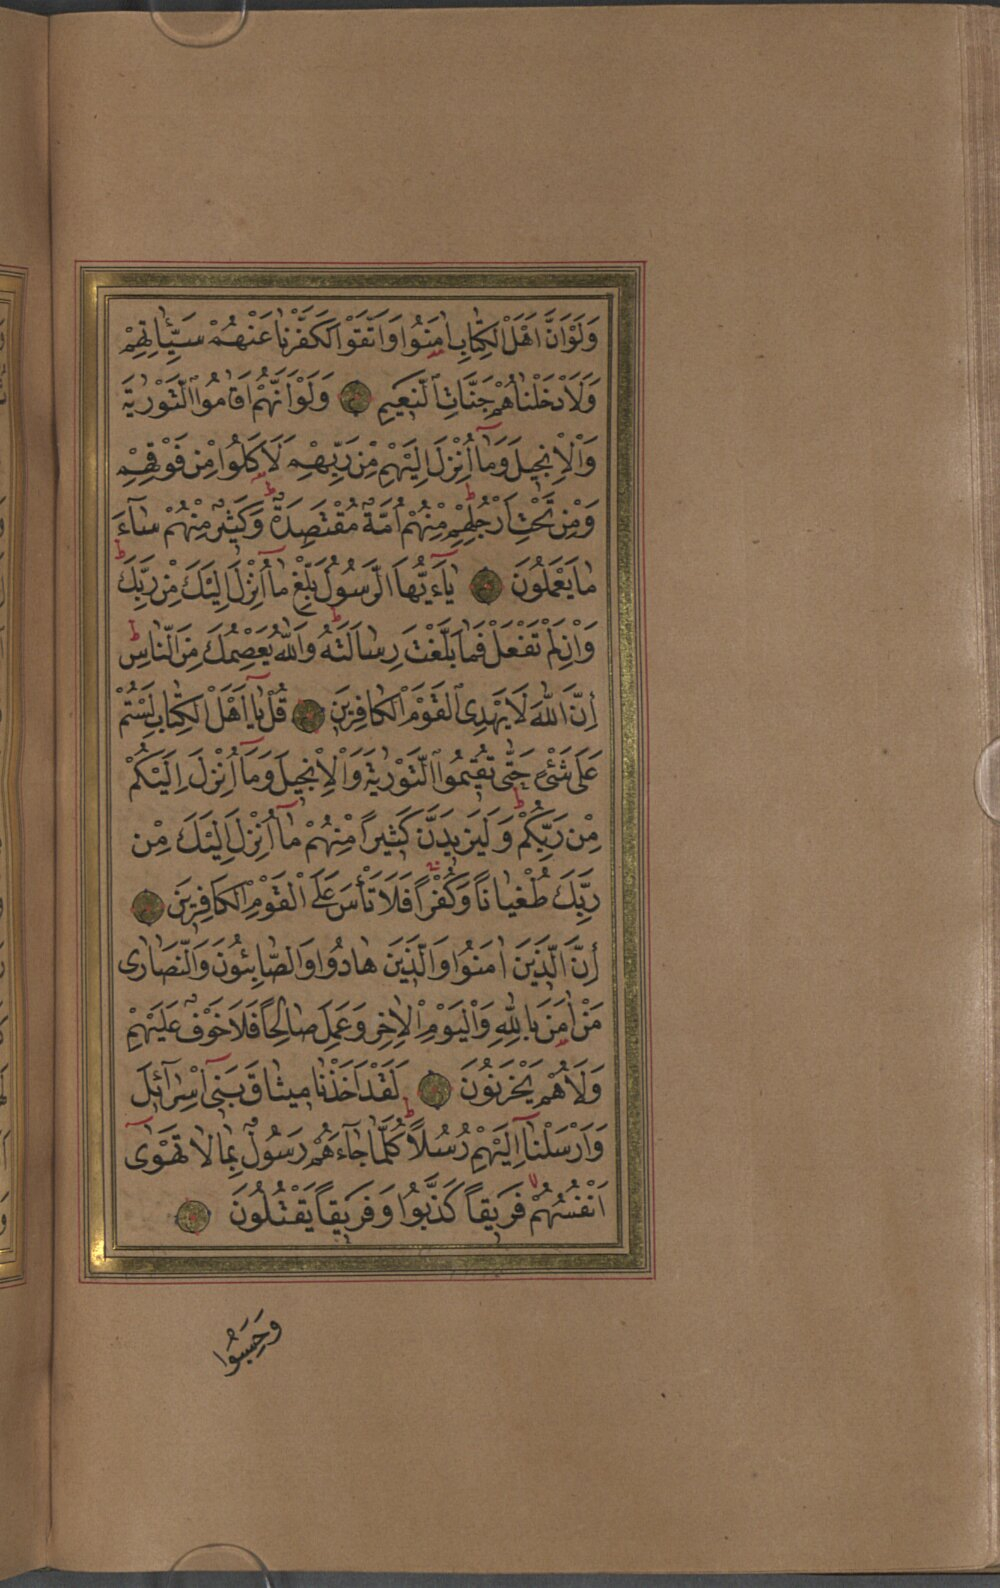 وَلَوْ اَنَّ اَهْلَ الْكِتَابِ اٰمَنُوا وَاتَّقَوْا لَكَفَّرْنَا عَنْهُمْ سَيِّـَٔاتِهِمْ
وَلَاَدْخَلْنَاهُمْ جَنَّاتِ النَّعِيمِ وَلَوْ اَنَّهُمْ اَقَامُوا التَّوْرٰيةَ
وَالْاِنْجِيلَ وَمَآ اُنْزِلَ اِلَيْهِمْ مِنْ رَبِّهِمْ لَاَكَلُوا مِنْ فَوْقِهِمْ
وَمِنْ تَحْتِ اَرْجُلِهِمْ مِنْهُمْ اُمَّةٌ مُقْتَصِدَةٌ وَكَثِيرٌ مِنْهُمْ سَآءَ
مَا يَعْمَلُونَ يَآءَيُّهَا الرَّسُولُ بَلِّغْ مَآ اُنْزِلَ اِلَيْكَ مِنْ رَبِّكَ
وَاِنْ لَمْ تَفْعَلْ فَمَا بَلَّغْتَ رِسَالَتَهُ وَاللّٰهُ يَعْصِمُكَ مِنَ النَّاسِ
اِنَّ اللّٰهَ لَا يَهْدِى الْقَوْمَ الْكَافِرِينَ قُلْ يَآ اَهْلَ الْكِتَابِ لَسْتُمْ
عَلٰى شَىْءٍ حَتّٰى تُقِيمُوا التَّوْرٰيةَ وَالْاِنْجِيلَ وَمَآ اُنْزِلَ اِلَيْكُمْ
مِنْ رَبِّكُمْ وَلَيَزِيدَنَّ كَثِيرًا مِنْهُمْ مَآ اُنْزِلَ اِلَيْكَ مِنْ
رَبِّكَ طُغْيَانًا وَكُفْرًا فَلَا تَأْسَ عَلَى الْقَوْمِ الْكَافِرِينَ
اِنَّ الَّذِينَ اٰمَنُوا وَالَّذِينَ هَادُوا وَالصَّابِئُونَ وَالنَّصَارٰى
مَنْ اٰمَنَ بِاللّٰهِ وَالْيَوْمِ الْاٰخِرِ وَعَمِلَ صَالِحًا فَلَا خَوْفٌ عَلَيْهِمْ
وَلَا هُمْ يَحْزَنُونَ لَقَدْ اَخَذْنَا مِيثَاقَ بَنِىٓ اِسْرَآئِلَ
وَاَرْسَلْنَآ اِلَيْهِمْ رُسُلًا كُلَّمَا جَآءَهُمْ رَسُولٌ بِمَا لَا تَهْوٰىٓ
اَنْفُسُهُمْ فَرِيقًا كَذَّبُوا وَفَرِيقًا يَقْتُلُونَ
وَحَسِبُوا